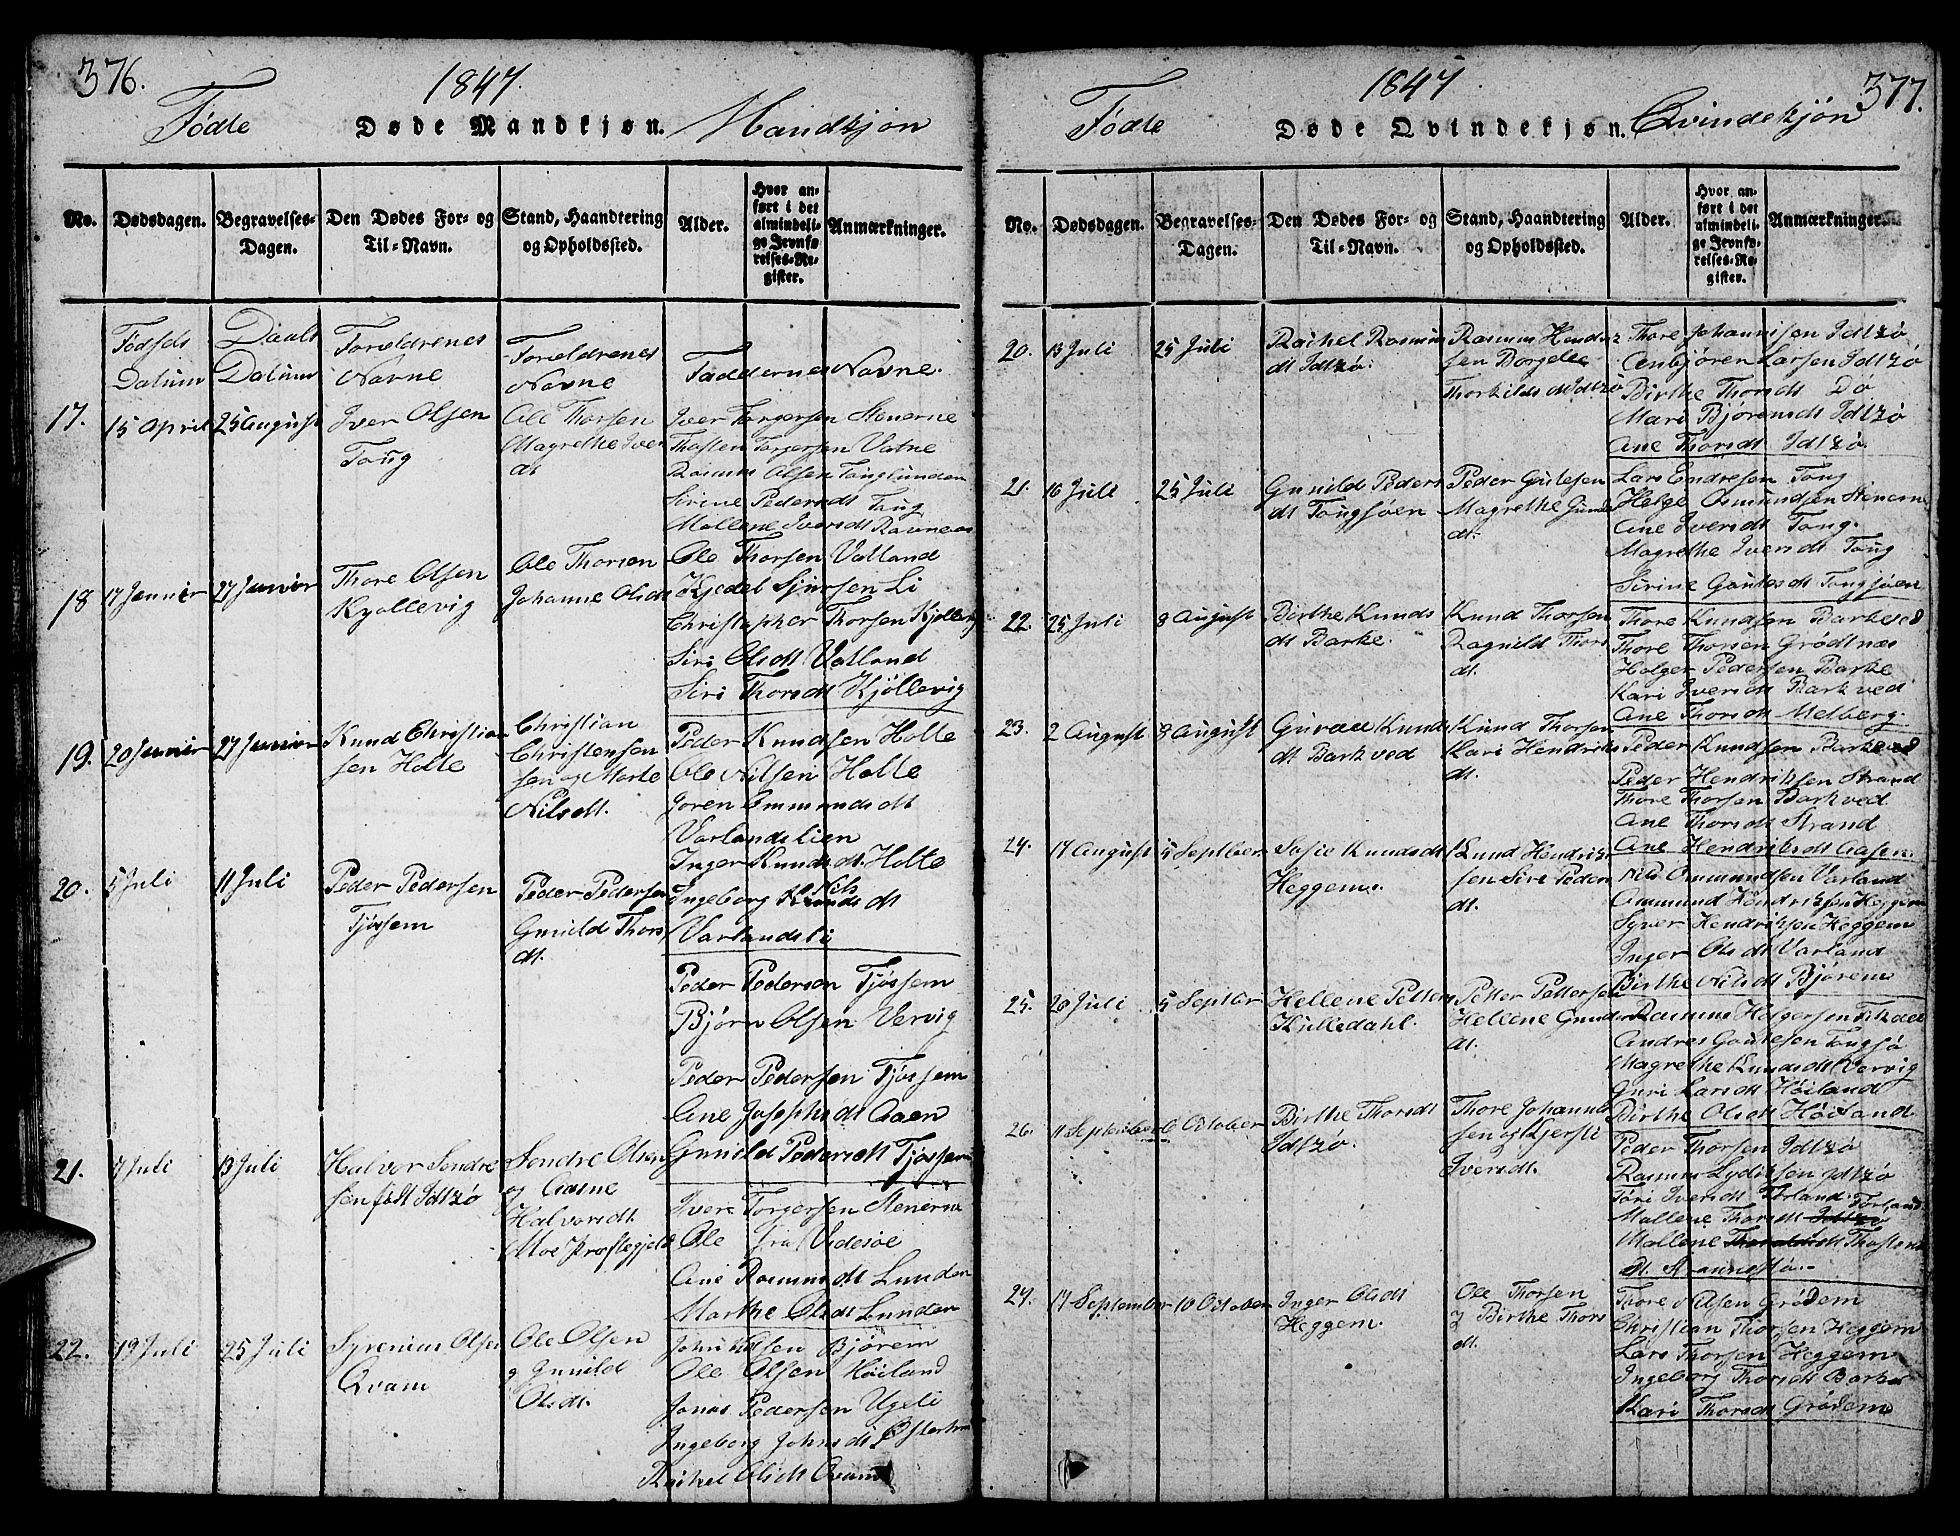 376.
1847.
Fødte
Døde Mandkjøn.
Mandkjøn
No.
Dødsdagen.
Begravelses-
Dagen.
Den Dødes For- og
Til-Navn.
Stand, Haandtering
og Opholdssted.
Alder.
Hvor an-
ført i det
almindeli-
ge Jevnfø-
relses-Re-
gister.
Anmærkninger.
Fødsels
Datum
Daabs
Datum
Forældrenes
Navne
Forældrenes
Navne
Faddernes Navne.
17.
15 April
25 August
Iver Olsen
Toug
Ole Thorsen
Magrethe Ivers
dt
Iver Torgersen Stenerne
Thosten Torgersen Vatne
Rasmus Olsen Touglunden
Sirine Pedersdt Toug
Mallene Iversdt Ravneas
18
17 Januar
27 Januar
Thore Olsen
Kjøllevig
Ole Thorsen
Johanne Olsdt
Ole Thorsen Vatland
Kjedel Sjursen Li
Christopher Thorsen Kjøllevig
Siri Olsdt Vatland
Siri Thorsdt Kjøllevig
19.
20 Januar
27 Januar
Knud Christian
sen Holte
Christian
Christensen
sen og Marte
Nilsdt.
Peder Knudsen Holte
Ole Nilsen Holte
Joren Ommundsdt
Varlandslien
Inger Knudsdt. Holte
Ingeborg Nils dt
Varlandsli
20.
5 Juli
11 Juli
Peder Pedersen
Tjøssem
Peder Pedersen
Gunild Thors
dt.
Peder Pederson Tjøssem
Bjørn Olsen Vervig
Peder Pedersen Tjøssem
Ane Josephsdt Aaen
Gunild Pedersdt Tjøssem
21.
7 Juli
13 Juli
Halvor Sondre
sen født Idtzø
Sondre Olsen
og Aasne
Halvorsdt.
Moe Præstegjeld
Ivere Torgersen Stenerne
Ole fra Videsøe
Ane Rasmusdt Lunden
Marthe Olsdt Lunden
22.
19 Juli
25 Juli
Syrenius Olsen
Qvam
Ole Olsen
og Gunild
Olsdt.
John Olsen Bjørem
Ole Olsen Høiland
Jonas Pedersen Ugeli
Ingeborg Johnsdt Østerhus
Rachel Olsdt Qvam
1847
377.
Fødte
Døde Qvindekjøn.
Qvindekjøn
No.
Dødsdagen.
Begravelses-
Dagen.
Den Dødes For- og
Til-Navn.
Stand, Haandtering
og Opholdssted.
Alder.
Hvor an-
ført i det
almindeli-
ge Jevnfø-
relses-Re-
gister.
Anmærkninger.
20.
13 Juli
25 Juli
Rachel Rasmus
dt Idtzø.
Rasmus Hendri
sen Borgelle
Thorkildsdt Idtzø
Thore Johannissen Idtzø
Aenbjören Larsen Idtzø
Birthe Thorsdt Do
Mari Bjørensdt Idtzø
Ane Thorsdt Idtzø
21.
16 Juli
25 Juli
Gunild Peders
dt Tougsøen
Peder Gautesen
Magrethe Gunde
dt.
Lars Endresen Toug
Helge Osmundsen Stenerne
Ane Iversdt Toug.
Magrethe Iversdt Toug
Sirine Gautesdt Tougsøen
22.
25 Juli
8 August
Birthe Knuds
dt Barke.
Knud Thorsen
Ragnild Thors
dt.
Thore Knudsen Barkeved
Thore Thorsen Grødtnæs
Holger Pedersen Barke
Kari Iversdt Barkved
Ane Thorsdt Melberg.
23.
2 August
8 August
Guroe Knuds
dt Barkved
Knud Thorsen
Kari Hendriks
dt.
Peder Knudsen Barkeved
Peder Hendriksen Strand
Thore Thorsen Barkved
Ane Thorsdt Strand
Ane Hendriksdt Aasen.
24.
17 August
5 Septber
Sofie Knudsdt
Heggem.
Knud Hendrik
sen Siri Peders
dt.
Nils Ommundsen Varland
Ommund Hendriksen Heggem
Syver Hendriksen Heggem
Inger Olsdt Varland
Birthe Nilsdt Bjørem
25.
20 Juli
5 Septbr
Hellene Petters
Kulledahl.
Petter Pettersen
Hellene Gunders
dt.
Rasmus Holgersen
Andres Gautesen Tougsø
Magrethe Knudsdt Vervig
Guri Larsdt Høiland
Birthe Olsdt Høiland.
26.
11 September
October
Birthe Thorsdt
Idtzø.
Thore Johannis
sen og Kjersti
Iversdt.
Peder Thorsen Idtzø
Rasmus Lydiksen Idtzø
Tøri Iversdt Førland.
Mallene Thorsdt Idtzø Førland
Mallene Thostens
dt. Rannestø.
27.
17 September
10 October
Inger Olsdt
Heggem.
Ole Thorsen
og Birthe Thors
dt.
Thore Olsen Grødem
Christian Thorsen Heggem
Lars Thorsen Heggem
Ingeborg Thorsdt Barke
Kari Thorsdt Grødem